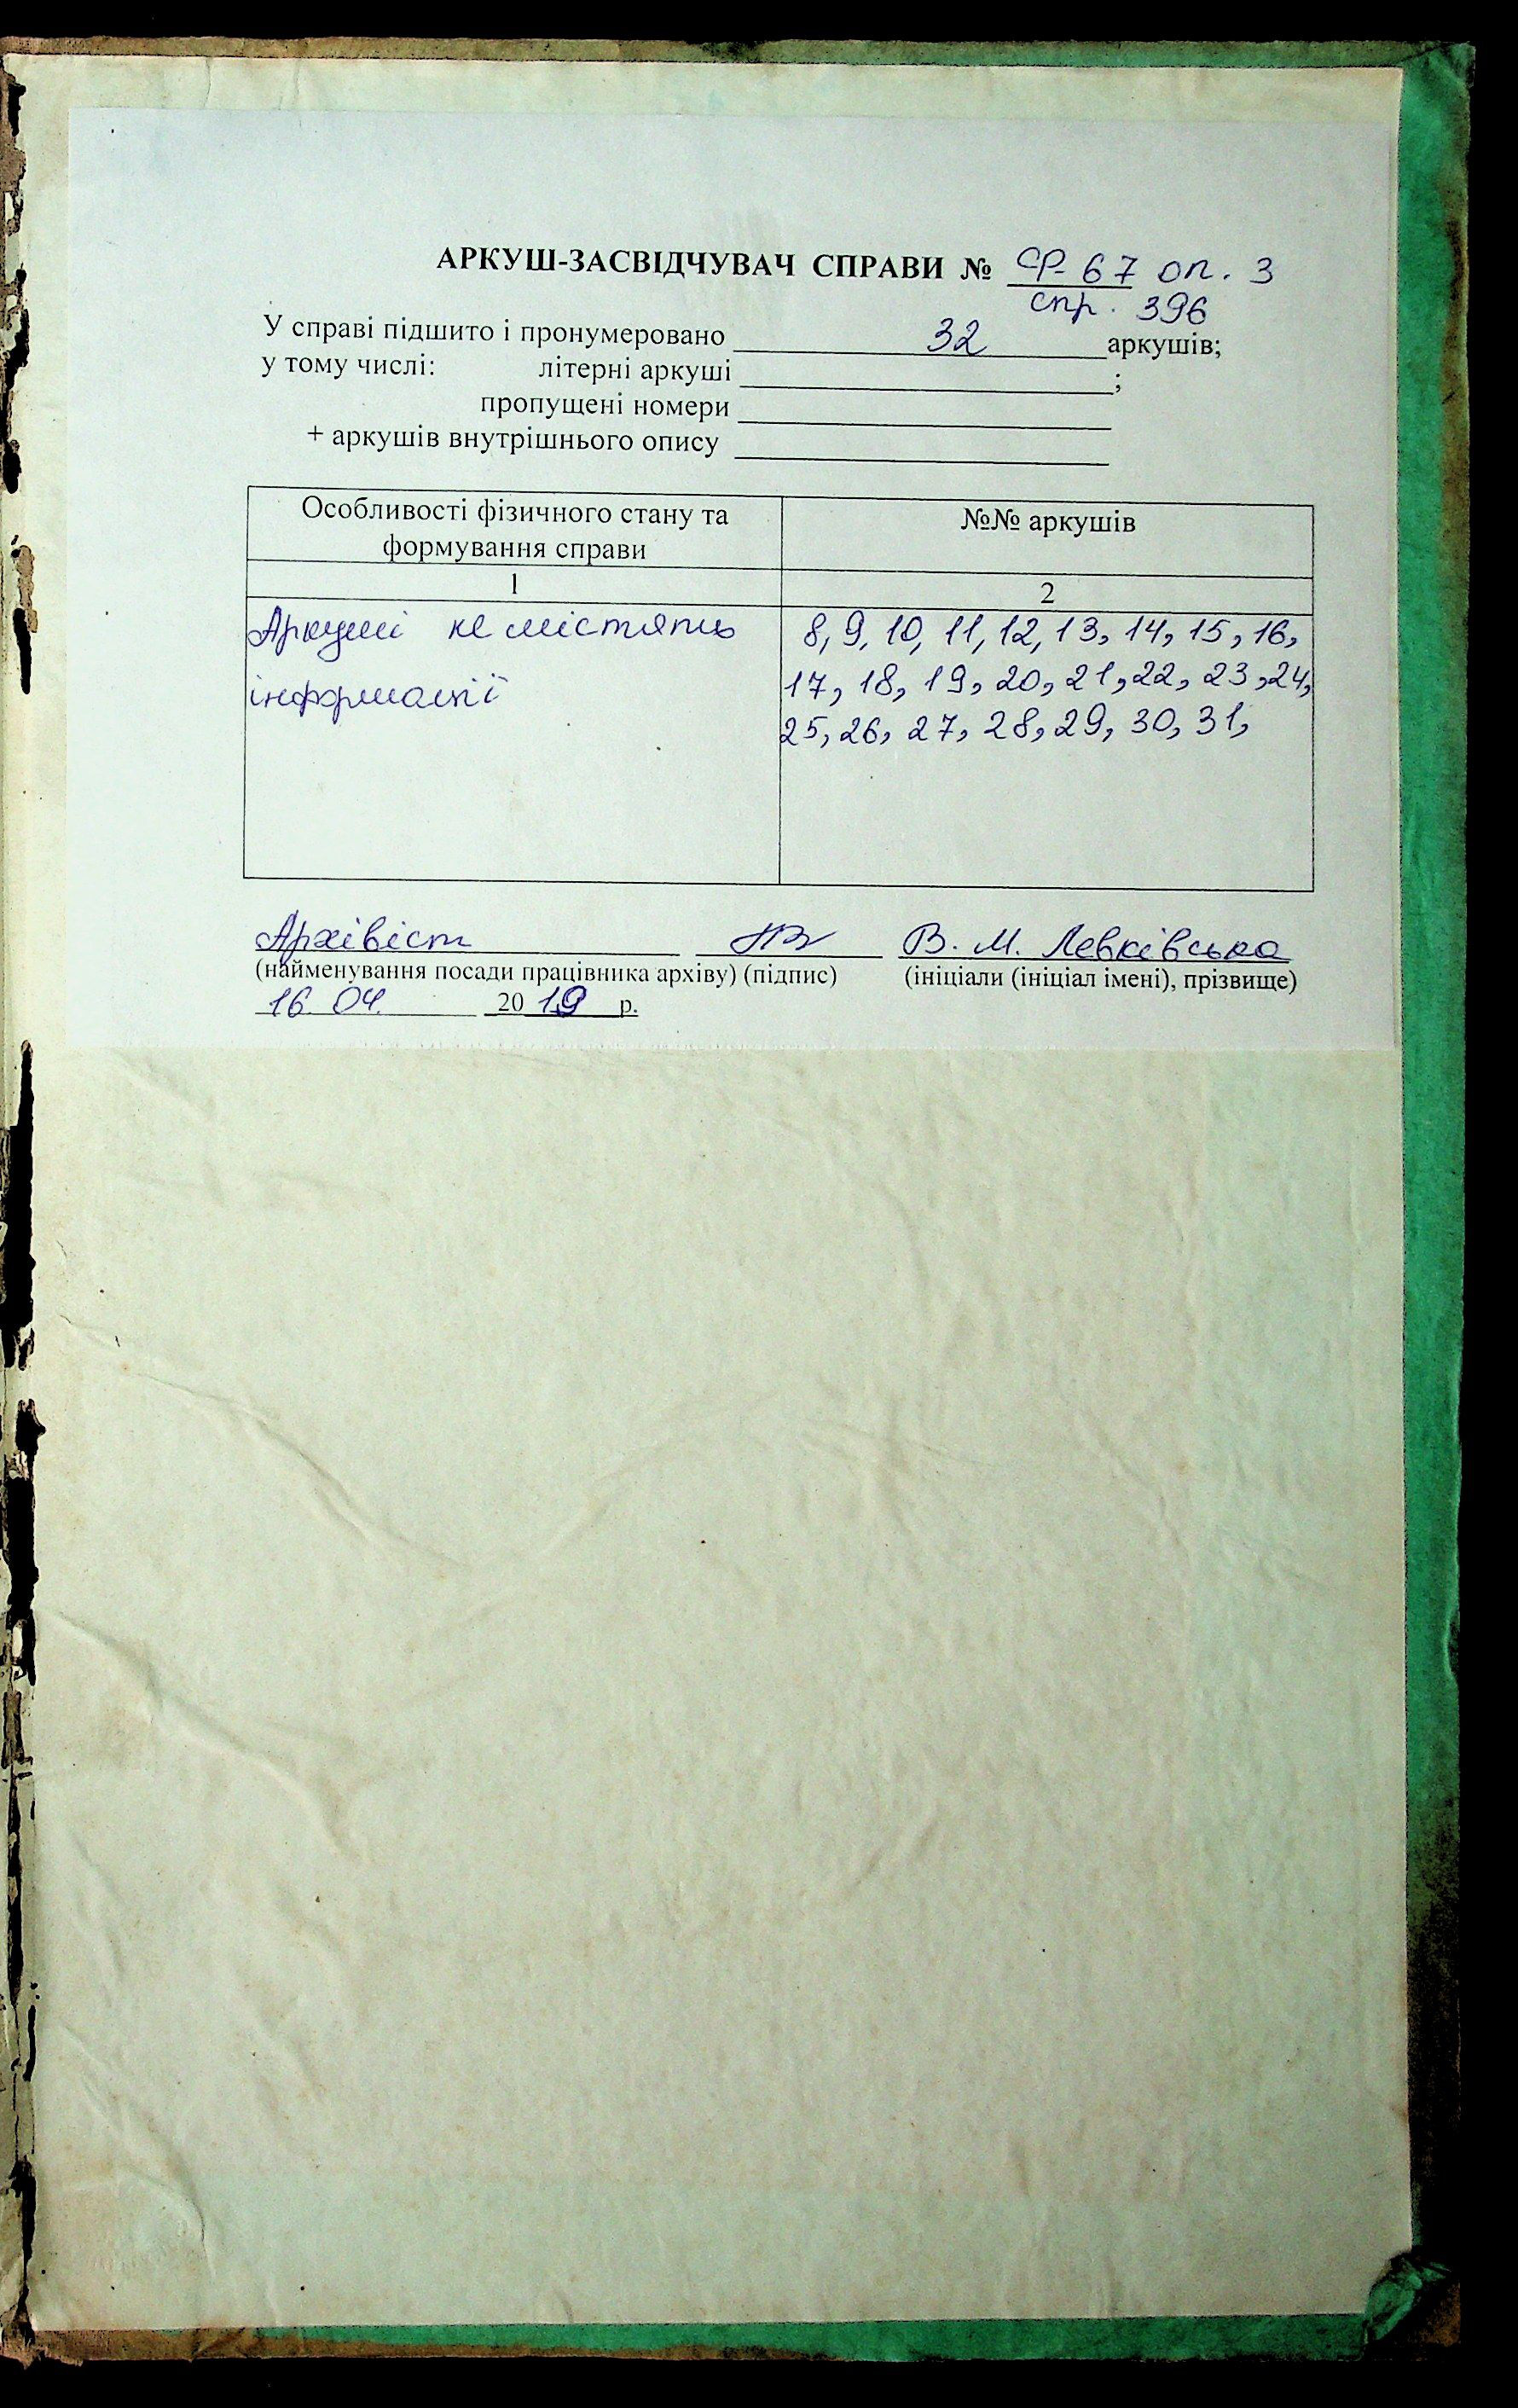 АРКУШ-ЗАСВІДЧУВАЧ СПРАВИ № ф-67 оп. 3
спр. 396
У справі підшито і пронумеровано 32 аркушів;
у тому числі: літерні аркуші ;
пропущені номери
+ аркушів внутрішнього опису
Особливості фізичного стану та №№ аркушів
формування справи
1 2
Аркуші не містять 8, 9, 10, 11, 12, 13, 14, 15, 16,
інформації 17, 18, 19, 20, 21, 22, 23, 24,
25, 26, 27, 28, 29, 30, 31,
Архівіст В. М. Левківська
(найменування посади працівника архіву) (підпис) (ініціали (ініціал імені), прізвище)
16. 04. 2019 р.